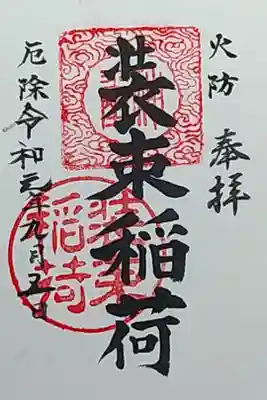 奉拝
火防
装束稲荷
厄除令和元年九月五日
装束
稲荷